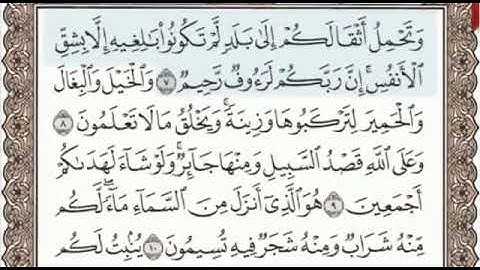 وَتَحْمِلُ أَثْقَالَكُمْ إِلَىٰ بَلَدٍ لَّمْ تَكُونُوا۟ بَٰلِغِيهِ إِلَّا بِشِقِّ
ٱلْأَنفُسِ ۚ إِنَّ رَبَّكُمْ لَرَءُوفٌ رَّحِيمٌ ٧ وَٱلْخَيْلَ وَٱلْبِغَالَ
وَٱلْحَمِيرَ لِتَرْكَبُوهَا وَزِينَةً ۚ وَيَخْلُقُ مَا لَا تَعْلَمُونَ ٨
وَعَلَى ٱللَّهِ قَصْدُ ٱلسَّبِيلِ وَمِنْهَا جَآئِرٌ ۚ وَلَوْ شَآءَ لَهَدَىٰكُمْ
أَجْمَعِينَ ٩ هُوَ ٱلَّذِىٓ أَنزَلَ مِنَ ٱلسَّمَآءِ مَآءً ۖ لَّكُم
مِّنْهُ شَرَابٌ وَمِنْهُ شَجَرٌ فِيهِ تُسِيمُونَ ١٠ يُنۢبِتُ لَكُم